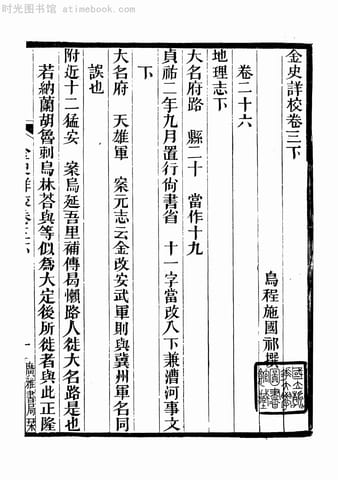 时光图书馆 - atimebook.com
金史詳校卷三下
烏程施國祁撰
卷二十六
地理志下
大名府路 縣二十 當作十九
貞祐二年九月置行尚書省 十一字當改入下兼漕河事文
下
大名府 天雄軍 案元志云金改安武軍則與冀州軍名同
誤也
附近十二猛安 案烏延吾里補傳曷懶路人徙大名路是也
若納蘭胡魯剌烏林荅與等似爲大定後所徙者與此正隆
金史詳校卷三下 一 廣雅書局栞